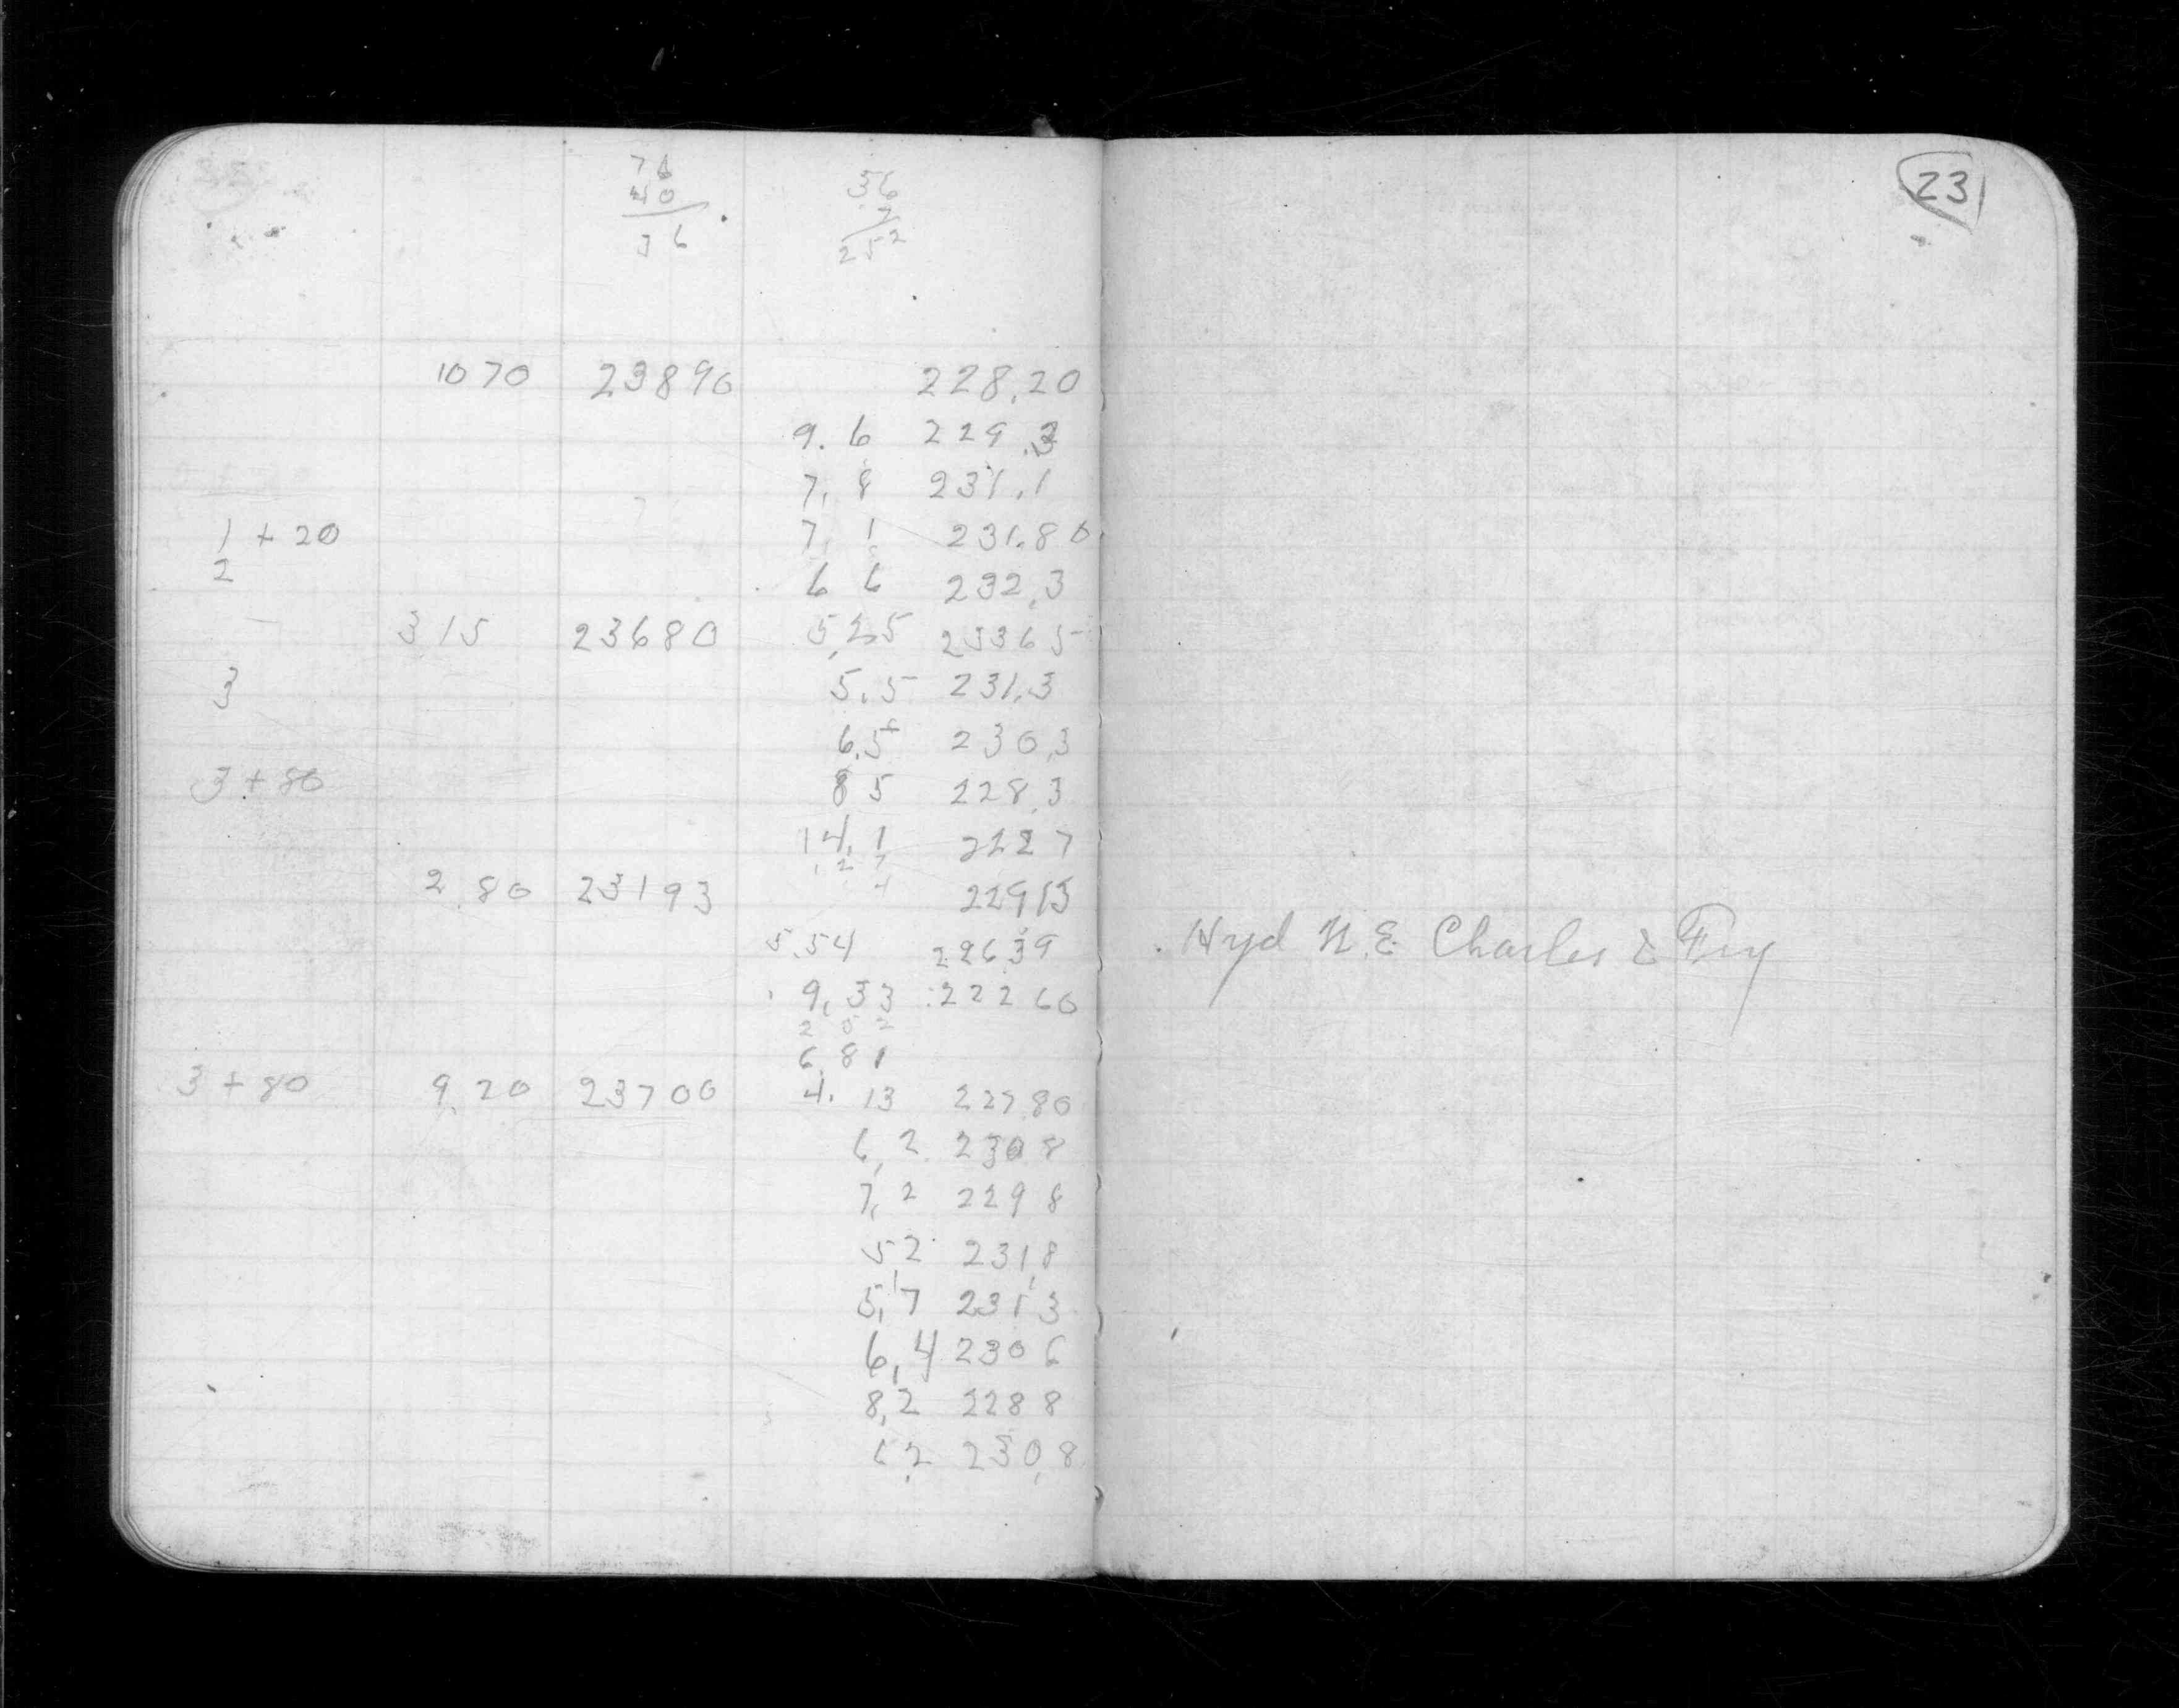 76
40
36
56
7
252
23
1070 23890 228.20
9.6 229.3
7.8 231.1
1+20 7.1 231.80
2 6 6 232.3
315 23680 5.25 23365
3 5.5 231.3
6.5 230.3
3+80 8 5 228.3
14.1 222 7
2.80 23193 22913
5.54 22639
Hyd N.E. Charles & Fry
9.33 22260
2 5 2
6.81
3+80 9.20 23700 4.13 227.80
6.2 230 8
7.2 229 8
5 2 231.8
5.7 231 3
6.4 230 6
8.2 228 8
6.2 230.8